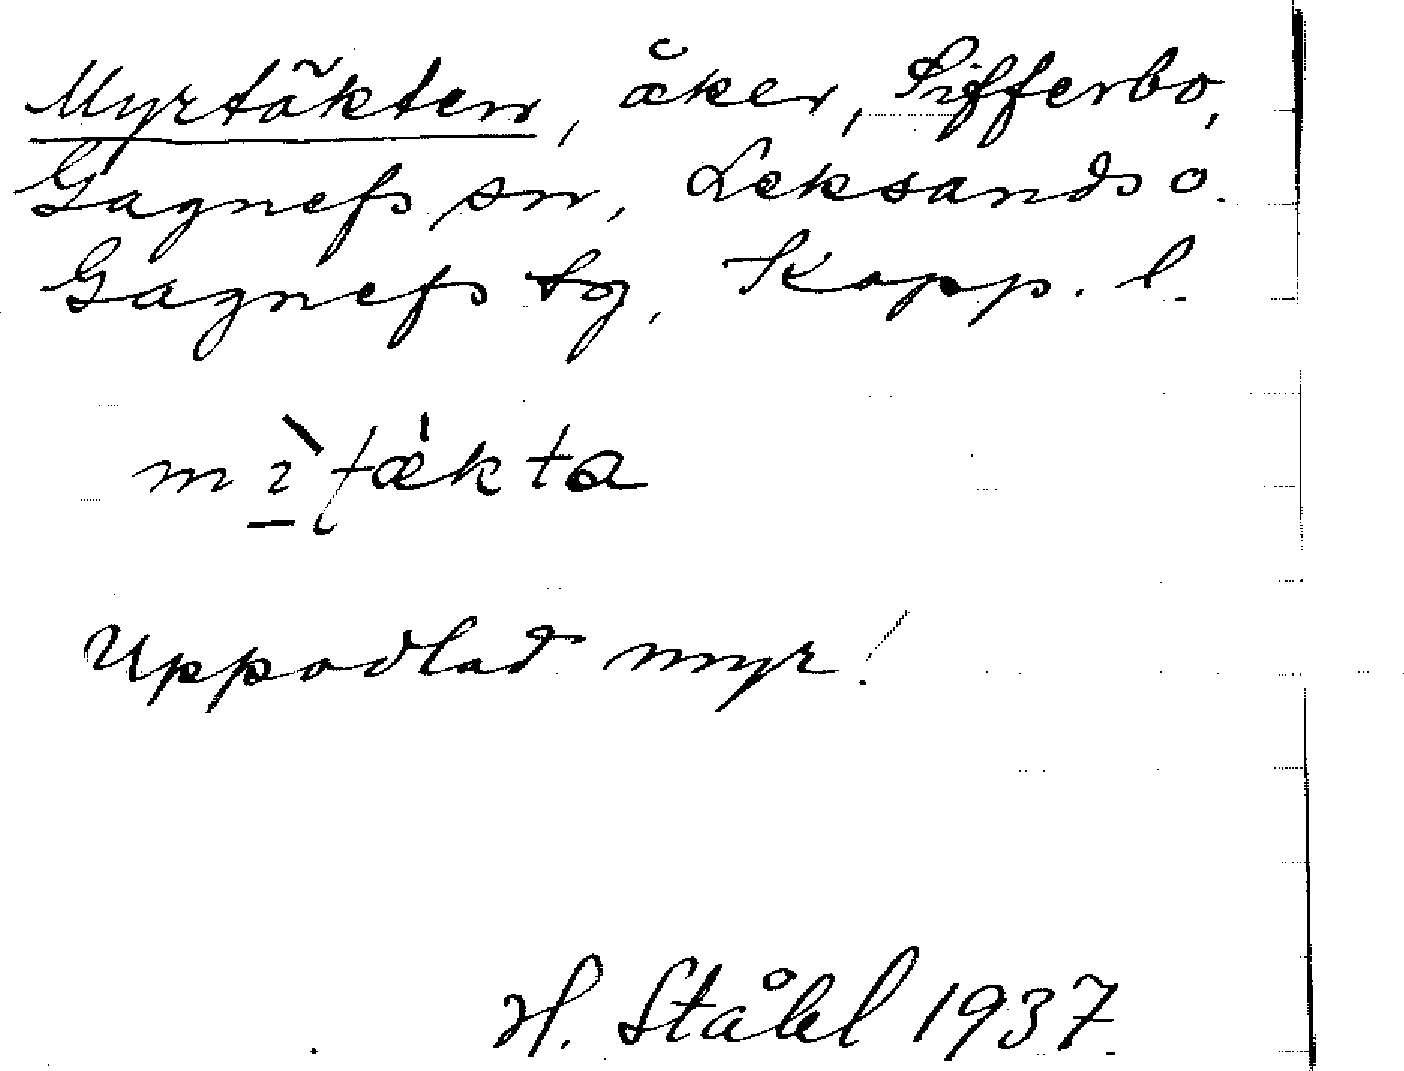 Myrtäkten, åker, Sifferbo,
Gagnefs sn, Leksands o.
Gagnefs tg, Kopp. l.
Uppodlad myr!
H. Ståhl 1937